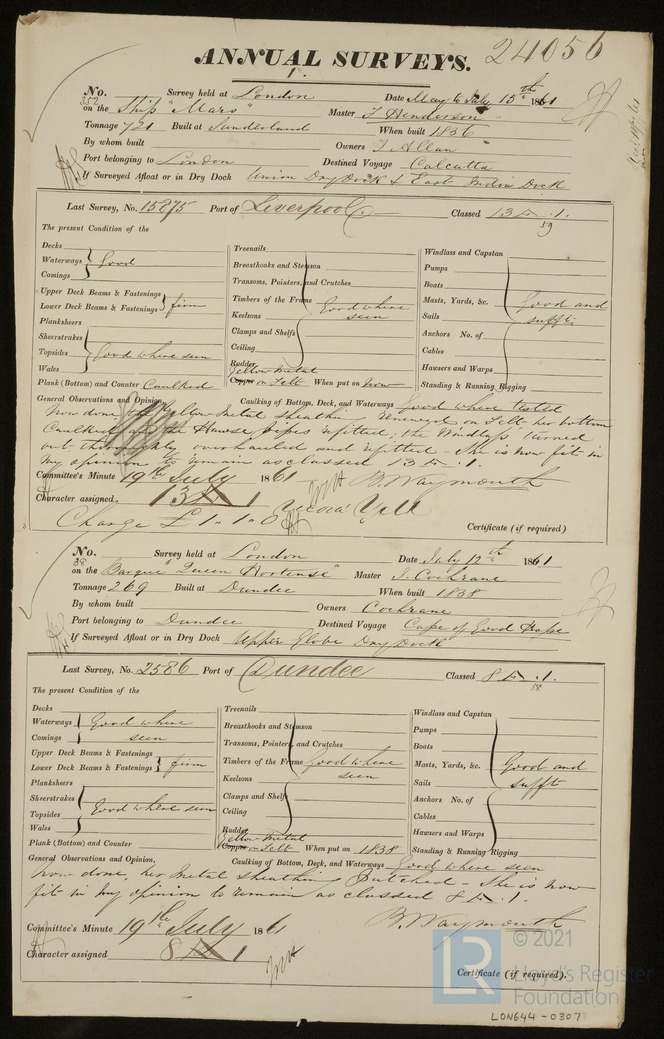 24056
ANNUAL SURVEYS.
No. 352 Survey held at London Date May to July 15th 1861
on the Ship "Mars" Master J Henderson
Tonnage 721 Built at Sunderland When built 1836
By whom built Owners J. Allan
Port belonging to London Destined Voyage Calcutta
If Surveyed Afloat or in Dry Dock Union Dry Dock & East India Dock
Last Survey, No. 15875 Port of Liverpool Classed 13 A .1.
59
The present Condition of the
Decks
Waterways Good
Comings
Upper Deck Beams & Fastenings
Lower Deck Beams & Fastenings firm
Planksheers
Sheerstrakes
Topsides Good where seen
Wales
Plank (Bottom) and Counter Caulked
Treenails
Breasthooks and Stemson
Transoms, Pointers, and Crutches
Timbers of the Frame Good where
Keelsons seen
Clamps and Shelfs
Ceiling
Rudder
Yellow Metal
Copper on Felt When put on Now
Windlass and Capstan
Pumps
Boats
Masts, Yards, &c. Good and
Sails sufft
Anchors No. of
Cables
Hawsers and Warps
Standing & Running Rigging
General Observations and Opinion, Caulking of Bottom, Deck, and Waterways Good where tested
Now done, Yellow Metal Sheathing renewed on Felt her bottom
Caulked, the Hawse pipes refitted, the Windlass turned
out thoroughly overhauled and refitted - She is now fit in
my opinion to remain as classed 13 A .1.
Committee's Minute 19th July 1861 B. Waymouth
Character assigned 13 A 1
Charge £ 1 " 1 " 0 Certificate (if required)
No. 38 Survey held at London Date July 12th 1861
on the Barque "Queen Hortense" Master J. Cochrane
Tonnage 269 Built at Dundee When built 1838
By whom built Owners Cochrane
Port belonging to Dundee Destined Voyage Cape of Good Hope
If Surveyed Afloat or in Dry Dock Upper Globe Dry Dock
Last Survey, No. 2586 Port of Dundee Classed 8 A .1.
58
The present Condition of the
Decks
Waterways Good where
Comings seen
Upper Deck Beams & Fastenings
Lower Deck Beams & Fastenings firm
Planksheers
Sheerstrakes
Topsides Good where seen
Wales
Plank (Bottom) and Counter
Treenails
Breasthooks and Stemson
Transoms, Pointers, and Crutches
Timbers of the Frame Good where
Keelsons seen
Clamps and Shelfs
Ceiling
Rudder
Yellow Metal
Copper on Felt When put on 1838
Windlass and Capstan
Pumps
Boats
Masts, Yards, &c. Good and
Sails sufft
Anchors No. of
Cables
Hawsers and Warps
Standing & Running Rigging
General Observations and Opinion, Caulking of Bottom, Deck, and Waterways Good where seen
Now done, her Metal Sheathing Patched - She is now
fit in my opinion to remain as classed 8 A .1.
Committee's Minute 19th July 1861 B. Waymouth
Character assigned 8 A 1
Certificate (if required).
LR © 2021
Lloyd's Register
Foundation
LON644-0307